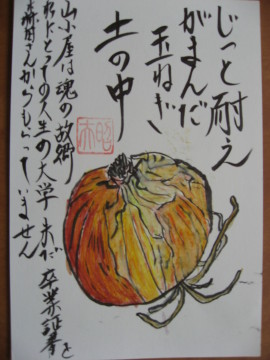 じっと耐え
がまんだ
玉ねぎ
土の中
山小屋は魂の故郷
わたにとっての人生の大学 未だ卒業証書を
さんからもらっていません